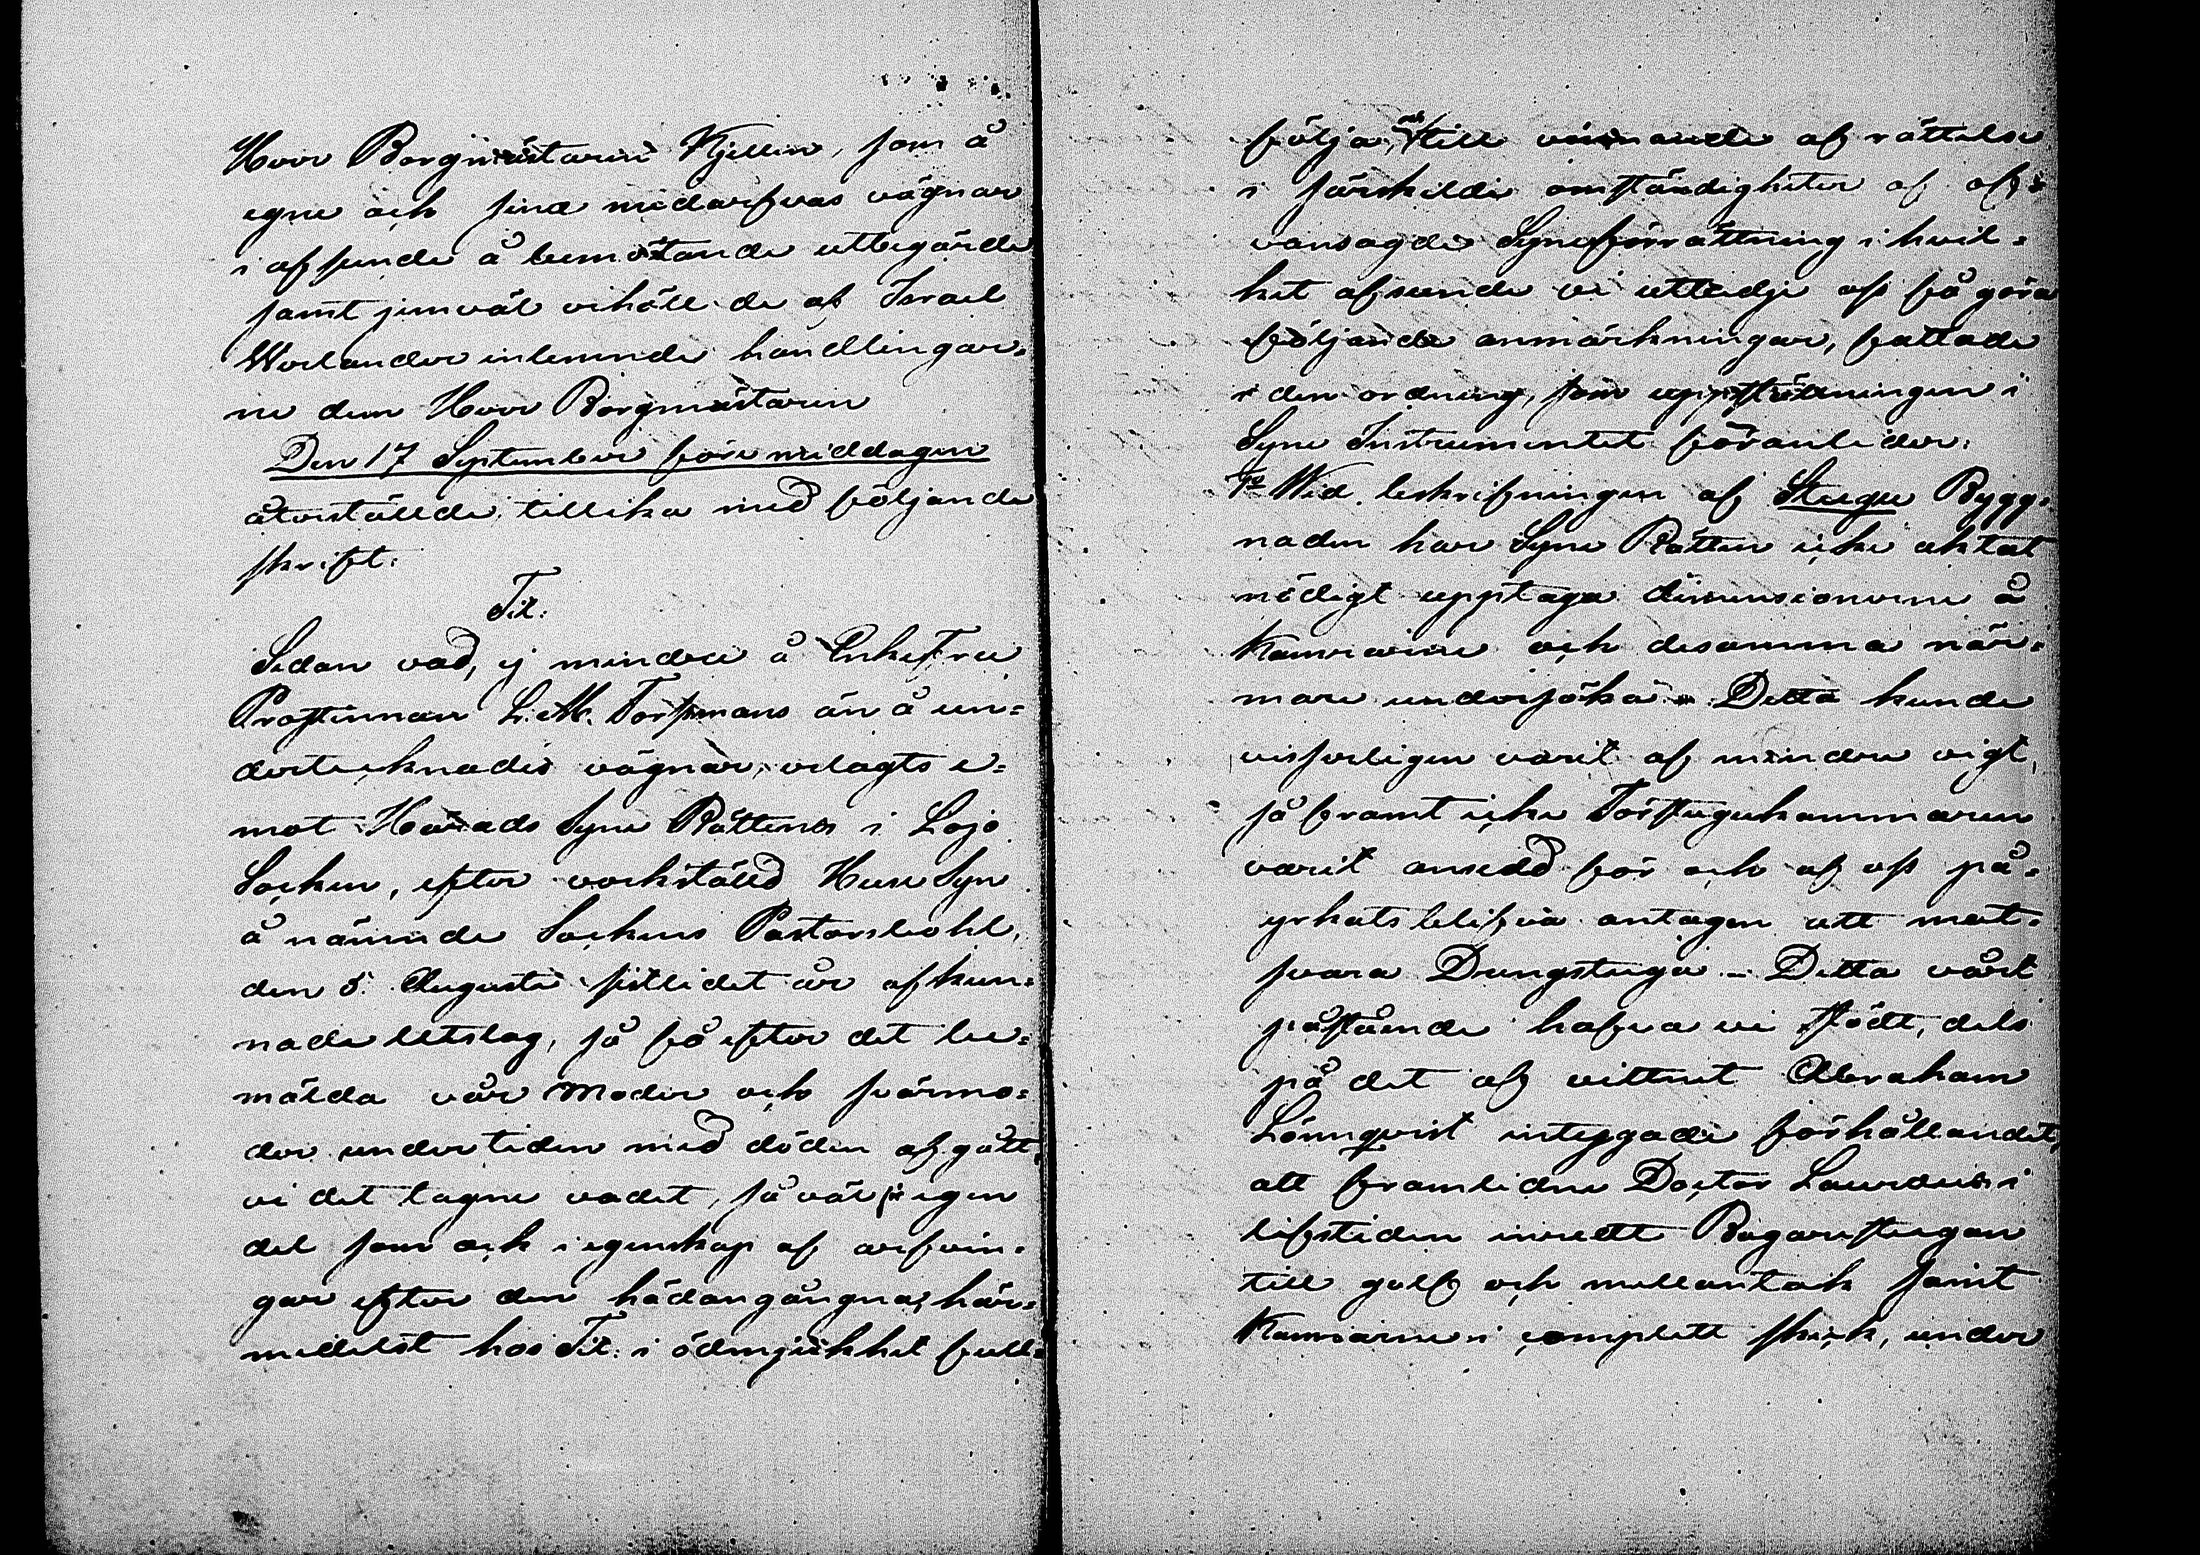 Herr Borgmästaren Kjellin, som å
egne och sina medarfvas vägnar
i afseende å bemötande utbegärde
samt jemväl erhöll de af Israel
Werlander inlemnde handlingar-
ne dem Herr Borgmästaren
Den 17 September före middagen
återställde, tillika med följande
skrift:
Tit:
Sedan vad, ej mindre å EnkeFru
Prostinnan L. M. Forsmans än å un=
dertecknades vägnar, erlagts e=
mot Härads Syne Rättens i Lojo
Socken, efter verkställd HuseSyn
å nämnde Sockens Pastorsbohl,
den 5. Augusti sistlidet år afkun=
nade Utslag, så få efter det be=
mälda vår Moder och svärmo=
der undertiden med döden afgått,
vi det tagne vadet, så väl för egen
del som ock i egenskap af arfvin=
gar efter den hädangångna, här=
medelst hos Tit: i ödmjukhet full=
följa, och till vinnande af rättelse
i särskilde omständigheter af of=
vansagde Syneförrättning i hvil=
ket afseende vi utbedje oss få göra
följande anmärkningar, fattade
i den ordning, som uppställningen i
Syne Instrumentet föranleder:
1o Wid beskrifningen af Stugu Bygg=
naden har Syne Rätten icke aktat
nödigt upptaga dimensionerne å
Kamrarne och desamma när=
mare undersöka. – Detta kunde
visserligen varit af mindre vigt,
så framt icke Förstugukammaren
varit ansedd för och af oss på=
yrkats blifva antagen att mot=
svara Drengstuga – Detta vårt
påstående hafva vi stödt, dels
på det af vittnet Abraham
Lönnqvist intygade förhållandet,
att framlidne Doctor Lauræus i
lifstiden inredt Bagarestugan
till golf och mellantak samt
Kamrarne i complett skick, under